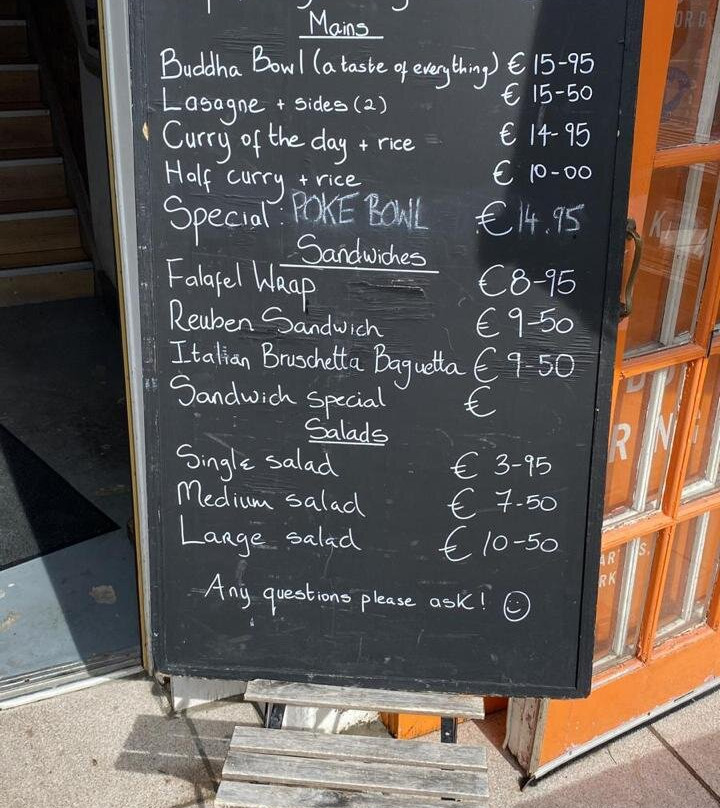 Mains
Buddha Bowl (a taste of everything) € 15-95
Lasagne + sides (2) € 15-50
Curry of the day + rice € 14-95
Half curry + rice € 10-00
Special: POKE BOWL € 14.95
Sandwiches
Falafel Wrap € 8-95
Reuben Sandwich € 9-50
Italian Bruschetta Baguetta € 9-50
Sandwich special €
Salads
Single salad € 3-95
Medium salad € 7-50
Large salad € 10-50
Any questions please ask!